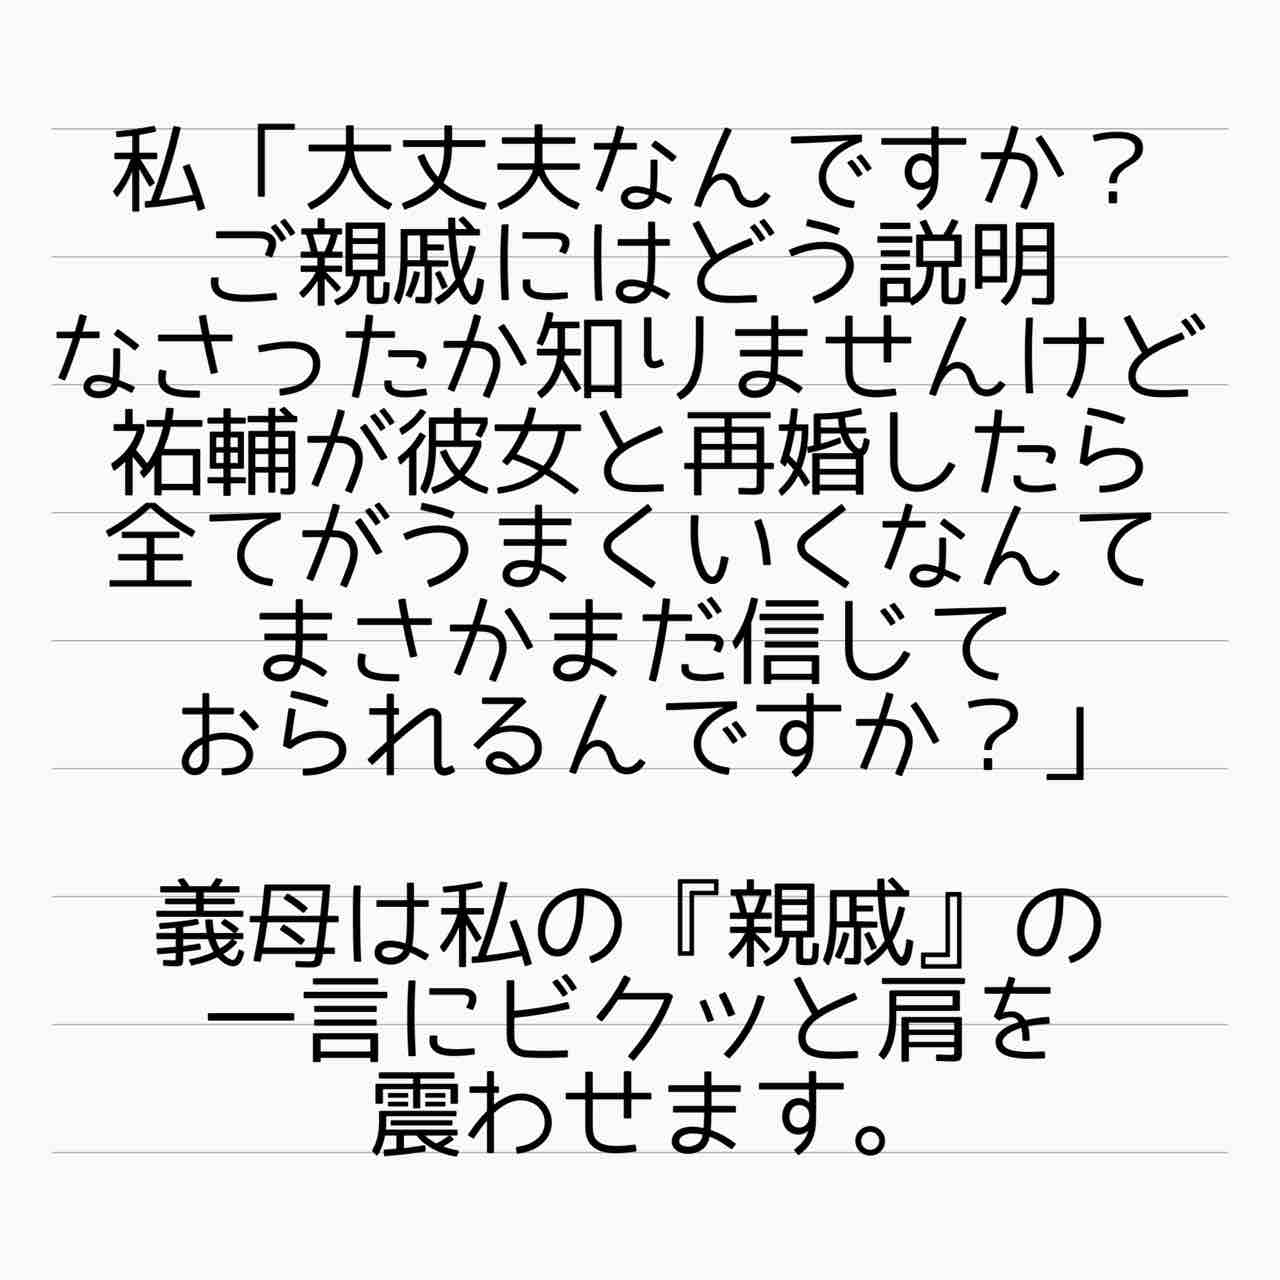 私「大丈夫なんですか？
ご親戚にはどう説明
なさったか知りませんけど
祐輔が彼女と再婚したら
全てがうまくいくなんて
まさかまだ信じて
おられるんですか？」
義母は私の『親戚』の
一言にビクッと肩を
震わせます。